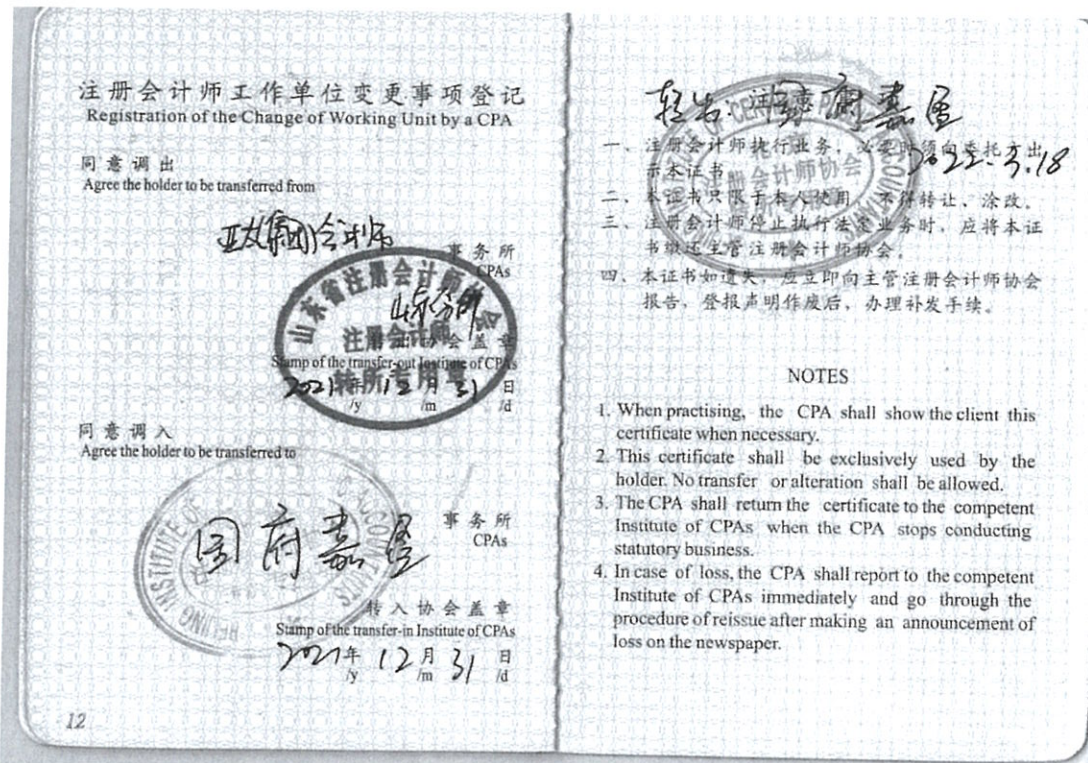 注册会计师工作单位变更事项登记
Registration of the Change of Working Unit by a CPA
同意调出
Agree the holder to be transferred from
亚太(集团)会计师
事务所
CPAs
山东分所
山东省注册会计师协会
注册会计师
转所专用章
Stamp of the transfer-out Institute of CPAs
2021年12月31日
/y /m /d
同意调入
Agree the holder to be transferred to
国府嘉盈
事务所
CPAs
BEIJING INSTITUTE OF
ACCOUNTANTS
转入协会盖章
Stamp of the transfer-in Institute of CPAs
2021年12月31日
/y /m /d
12
府嘉盈
2022.3.18
一、注册会计师执行业务,必要时须向委托方出
示本证书。
二、本证书只限于本人使用,不得转让、涂改。
三、注册会计师停止执行法定业务时,应将本证
书缴还主管注册会计师协会。
四、本证书如遗失,应立即向主管注册会计师协会
报告,登报声明作废后,办理补发手续。
NOTES
1. When practising, the CPA shall show the client this
certificate when necessary.
2. This certificate shall be exclusively used by the
holder. No transfer or alteration shall be allowed.
3. The CPA shall return the certificate to the competent
Institute of CPAs when the CPA stops conducting
statutory business.
4. In case of loss, the CPA shall report to the competent
Institute of CPAs immediately and go through the
procedure of reissue after making an announcement of
loss on the newspaper.